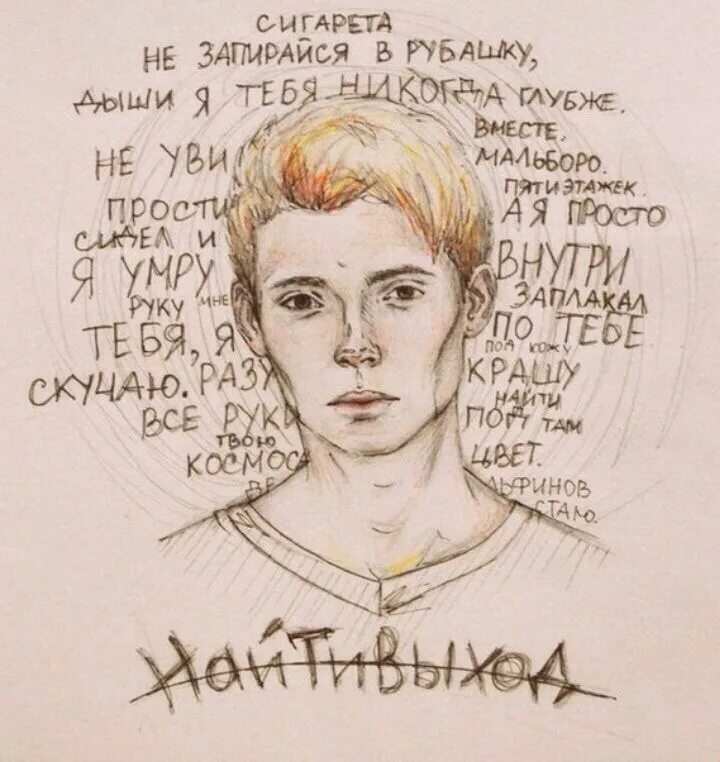 СИГАРЕТА
НЕ ЗАПИРАЙСЯ В РУБАШКУ,
ДЫШИ Я ТЕБЯ НИКОГДА ГЛУБЖЕ.
ВМЕСТЕ.
НЕ УВИ МАЛЬБОРО.
ПЯТИЭТАЖЕК.
ПРОСТИ А Я ПРОСТО
СИДЕЛ И
Я УМРУ ВНУТРИ
РУКУ МНЕ ЗАПЛАКАЛ
ТЕБЯ, Я ПО ТЕБЕ
ПОД КОЖУ
СКУЧАЮ. РАЗУ КРАШУ
НАЙТИ
ВСЕ РУКИ ПОД ТАМ
ТВОЮ
КОСМОС ЦВЕТ.
ДЕ ЛЬФИНОВ
СТАЮ.
НАЙТИВЫХОД